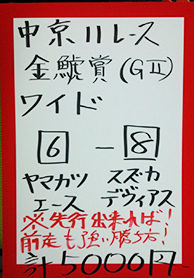 中京11レース
金鯱賞(GⅡ)
ワイド
6-8
ヤマカツ スズカ
エース デヴィアス
※先行出来れば!
前走も強い勝ち方!
計5000円